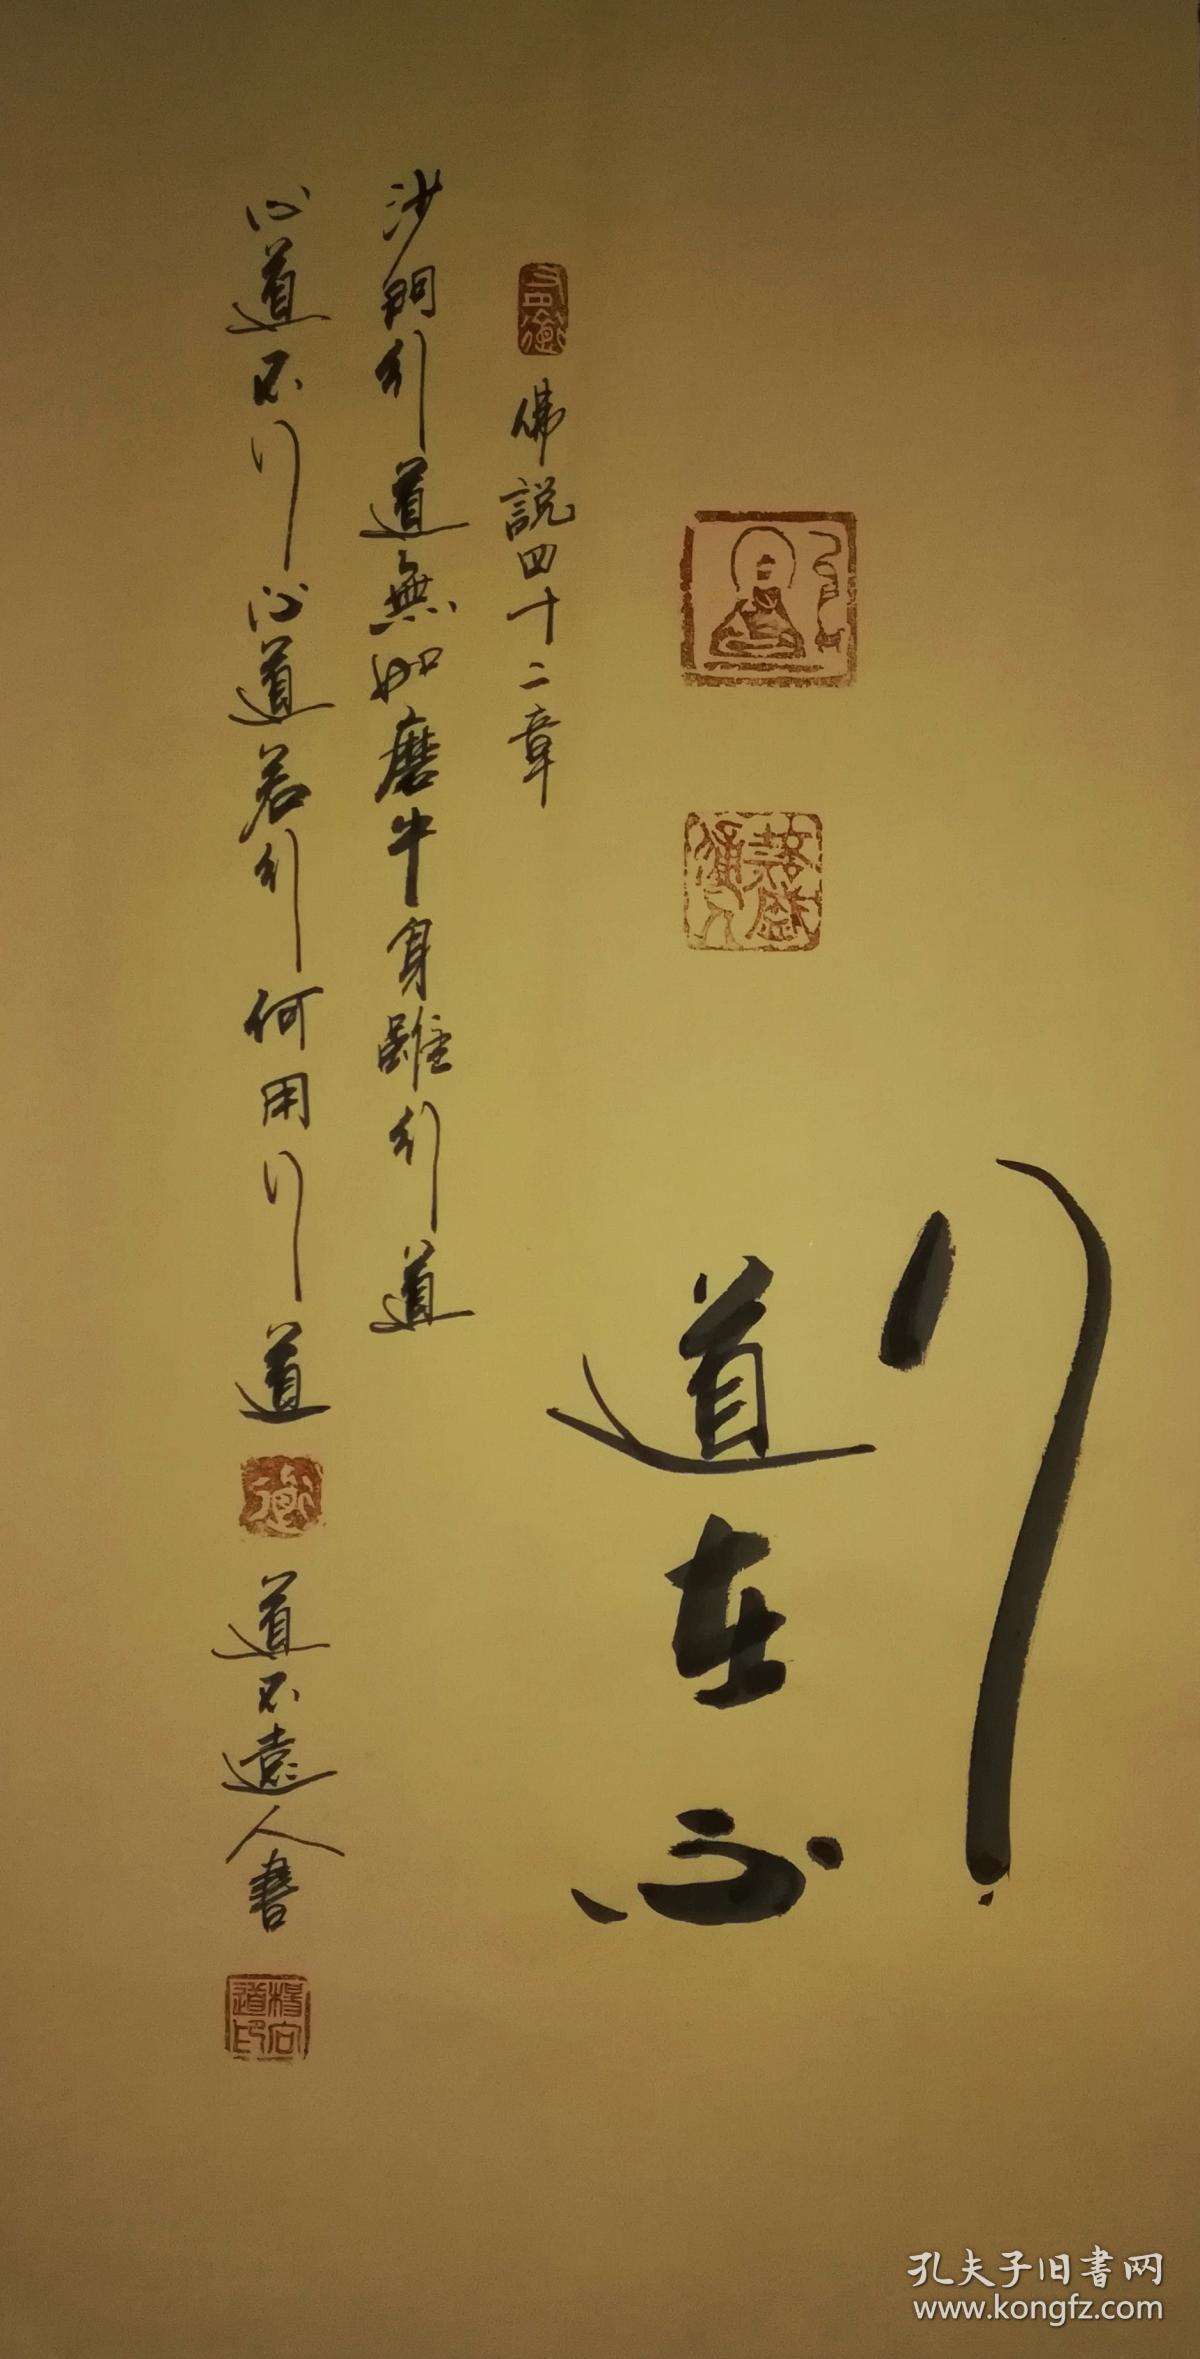 行
道在心
佛說四十二章
沙門行道無如磨牛身雖行道
心道不行心道若行何用行道
道不遠人書
楊向道印
孔夫子旧書网
www.kongfz.com